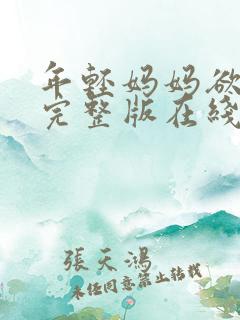 年轻妈妈欲
完整版在线
張天鴻
未经同意禁止转载